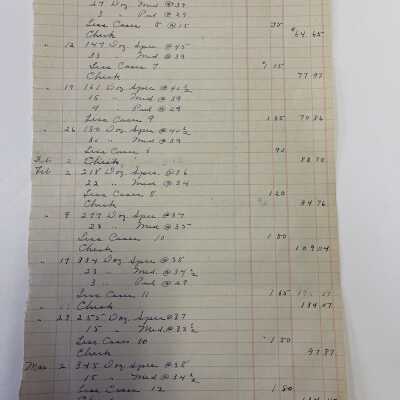 27 Doz Med @ 39
3 " Pul @ 29
Less Cases 5 @ 15
Check 64.65
" 12 147 Doz Spec @ 45
33 " Med @ 39
Less Cases 7 1.15
Check 77.97
" 19 161 Doz Spec @ 40½
15 " Med @ 39
4 " Pul @ 29
Less Cases 9 1.35 70.86
" 26 180 Doz Spec @ 40½
30 " Med @ 39
Less Cases 6 90
Feb 2 Check 83.70
Feb 2 218 Doz Spec @ 36
22 " Med @ 34
Less Cases 8 1.20
Check 84.76
" 9 277 Doz Spec @ 37
23 " Med @ 35
Less Cases 10 1.50
Check 109.04
" 17 334 Doz Spec @ 38
23 " Med. @ 34½
3 " Pul @ 29
Less Cases 11 1.65
" Check 134.07
" 23 255 Doz Spec @ 37
15 " Med. @ 33½
Less Cases 10 1.50
Check 97.87
Mar 2 345 Doz Spec @ 38
15 " Med @ 34½
Less Cases 12 1.80